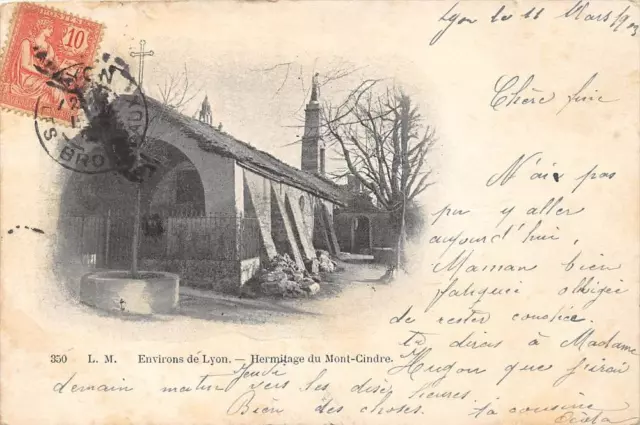 Lyon le 11 Mars 1903
Chère
N'ai pas
pu y aller
aujourd'hui,
Maman bien
fatiguée obligée
de rester couchée.
tu diras à Madame
Hugon que j'irai
Jeudi
demain matin vers les dix heures
Bien des choses. ta cousine
POSTES
10
LES BROTTEAUX
350 L. M. Environs de Lyon. — Hermitage du Mont-Cindre.